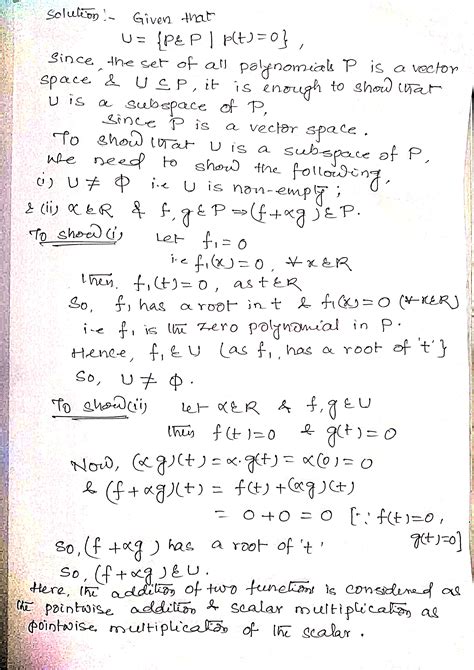 Solution:- Given that
U = {P∈P | p(t)=0},
Since, the set of all polynomials P is a vector
space & U ⊆ P, it is enough to show that
U is a subspace of P,
Since P is a vector space.
To show that U is a subspace of P,
We need to show the following,
(i) U ≠ Φ i.e U is non-empty;
& (ii) α∈R & f,g∈P ⇒ (f+αg)∈P.
To show(i) Let f₁=0
i.e f₁(x)=0, ∀ x∈R
Then, f₁(t)=0, as t∈R
So, f₁ has a root in t & f₁(x)=0 (∀x∈R)
i-e f₁ is the zero polynomial in P.
Hence, f₁∈U (as f₁, has a root of 't'}
So, U ≠ Φ.
To show(ii) Let α∈R & f,g∈U
Then f(t)=0 & g(t)=0
Now, (αg)(t)=α.g(t)=α(0)=0
& (f+αg)(t) = f(t)+(αg)(t)
= 0+0=0 [∵ f(t)=0,
g(t)=0]
So, (f+αg) has a root of 't'
So, (f+αg)∈U.
Here, the addition of two functions is considered as
the pointwise addition & scalar multiplication as
pointwise multiplication of the scalar.